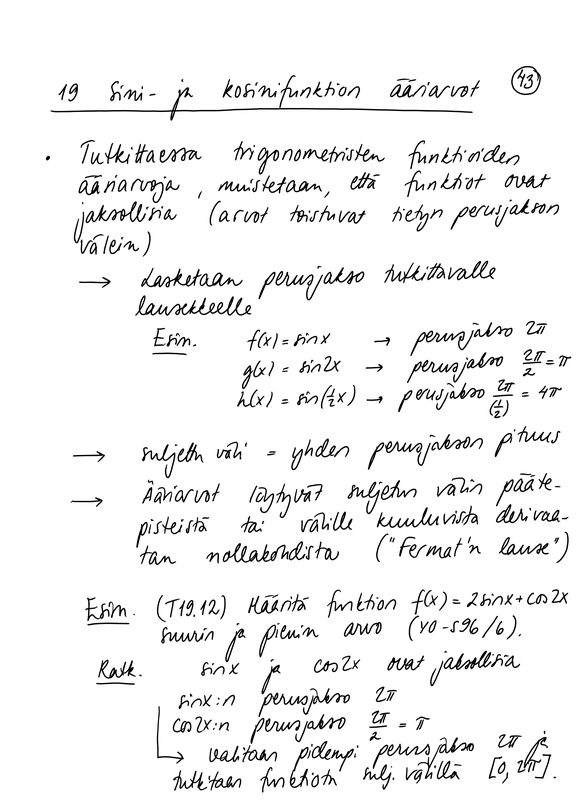 19 Sini- ja kosinifunktion ääriarvot
43
• Tutkittaessa trigonometristen funktioiden
ääriarvoja, muistetaan, että funktiot ovat
jaksollisia (arvot toistuvat tietyn perusjakson
välein)
→ Lasketaan perusjakso tutkittavalle
lausekkeelle
Esim. f(x) = sinx → perusjakso 2π
g(x) = sin2x → perusjakso 2π/2 = π
h(x) = sin(½x) → perusjakso 2π/(½) = 4π
→ suljettu väli = yhden perusjakson pituus
→ Ääriarvot löytyvät suljetun välin pääte-
pisteistä tai välille kuuluvista derivaa-
tan nollakohdista ("Fermat'n lause")
Esim. (T19.12) Määritä funktion f(x) = 2sinx + cos2x
suurin ja pienin arvo (YO-S96/6).
Ratk. sinx ja cos2x ovat jaksollisia
sinx:n perusjakso 2π
cos2x:n perusjakso 2π/2 = π
→ valitaan pidempi perusjakso 2π ja
tutkitaan funktiota sulj. välillä [0, 2π].